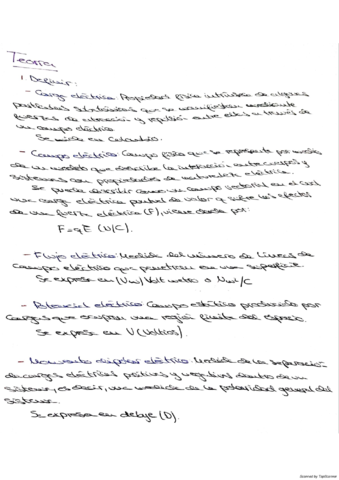 Teoría
1 Definir:
- Carga eléctrica Propiedad física intrínseca de algunas
partículas subatómicas que se manifiestan mediante
fuerzas de atracción y repulsión entre ellas a través de
un campo eléctrico
Se mide en Culombio.
- Campo eléctrico Campo físico que se representa por medio
de un modelo que describe la interacción entre cuerpos y
sistemas con propiedades de naturaleza eléctrica.
Se puede describir como un campo vectorial en el cual
una carga eléctrica puntual de valor q sufre los efectos
de una fuerza eléctrica (F), viene dada por:
F=qE (N/C).
- Flujo eléctrico Medida del número de líneas de
Campo eléctrico que penetran en una superficie.
Se expresa en (Vm) Volt metro o Nm²/C
- Potencial eléctrico Campo estático producido por
Cargas que ocupan una región finita del espacio.
Se expresa en V (Voltios).
- Momento dipolar eléctrico Medida de la separación
de cargas eléctricas positivas y negativas dentro de un
sistema, es decir, una medida de la polaridad general del
sistema.
Se expresa en debye (D).
Scanned by TapScanner